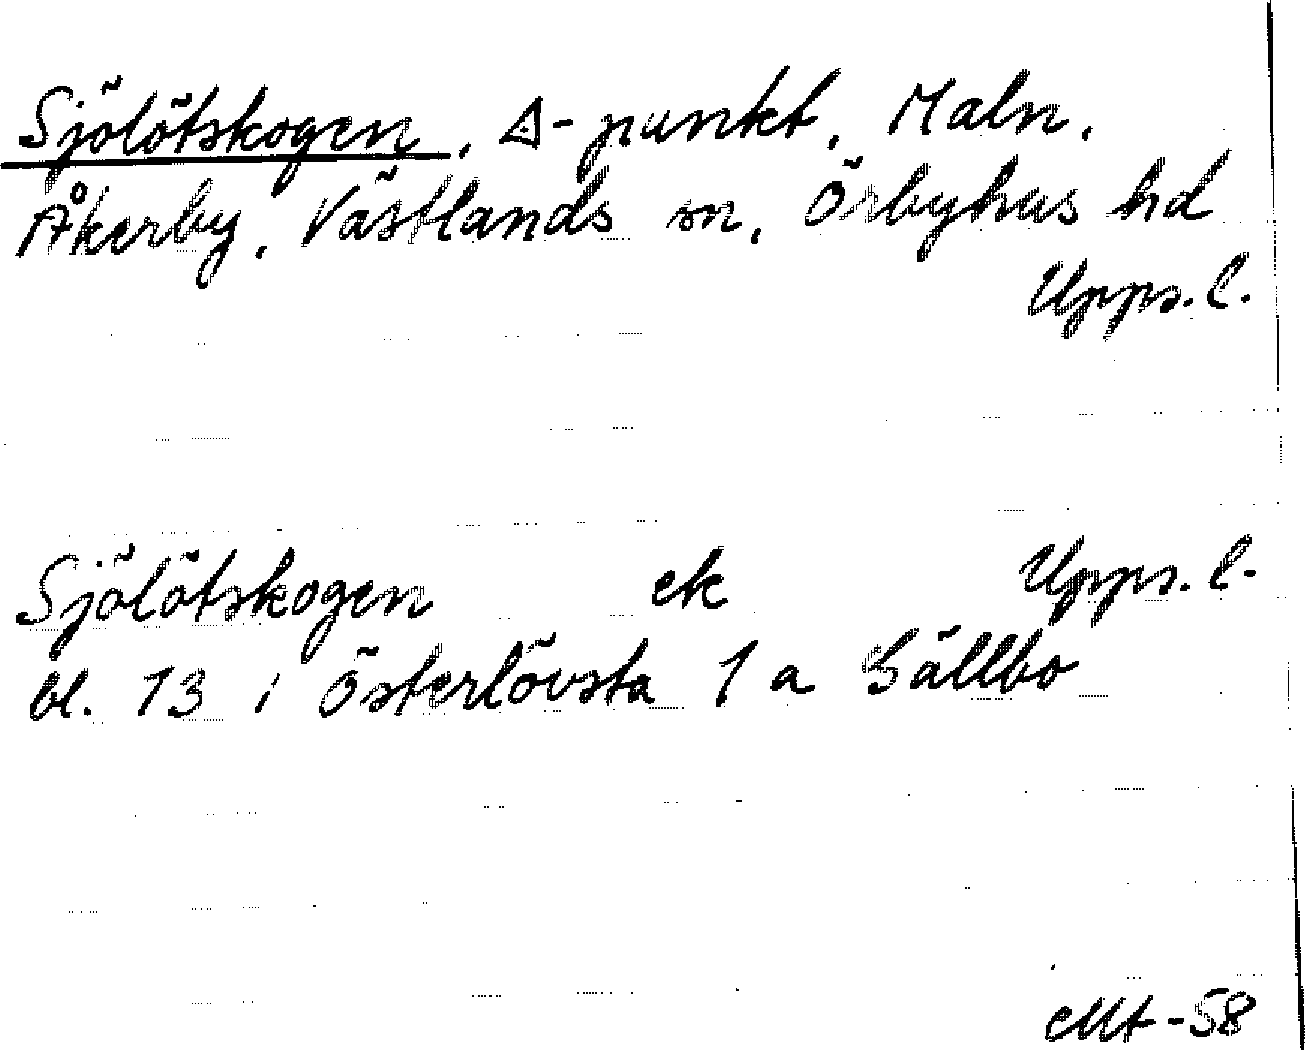 Sjölötskogen, △-punkt, Maln.
Åkerby, Västlands sn, Örbyhus hd
Upps. l.
Sjölötskogen ek Upps. l.
bl. 13 i Österlövsta 1 a Sällbo
-58